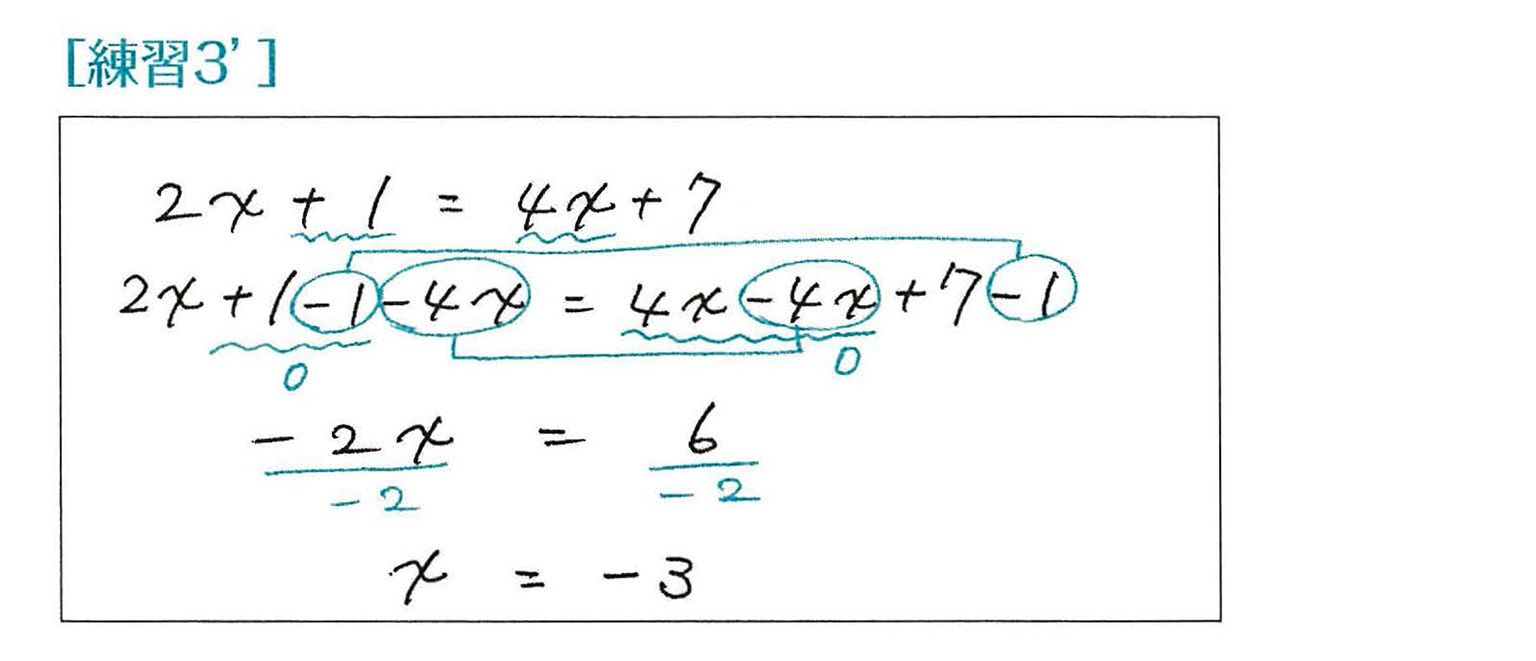 [練習3’]
2x + 1 = 4x + 7
2x + 1 - 1 - 4x = 4x - 4x + 7 - 1
0 0
- 2x = 6
- 2 - 2
x = - 3